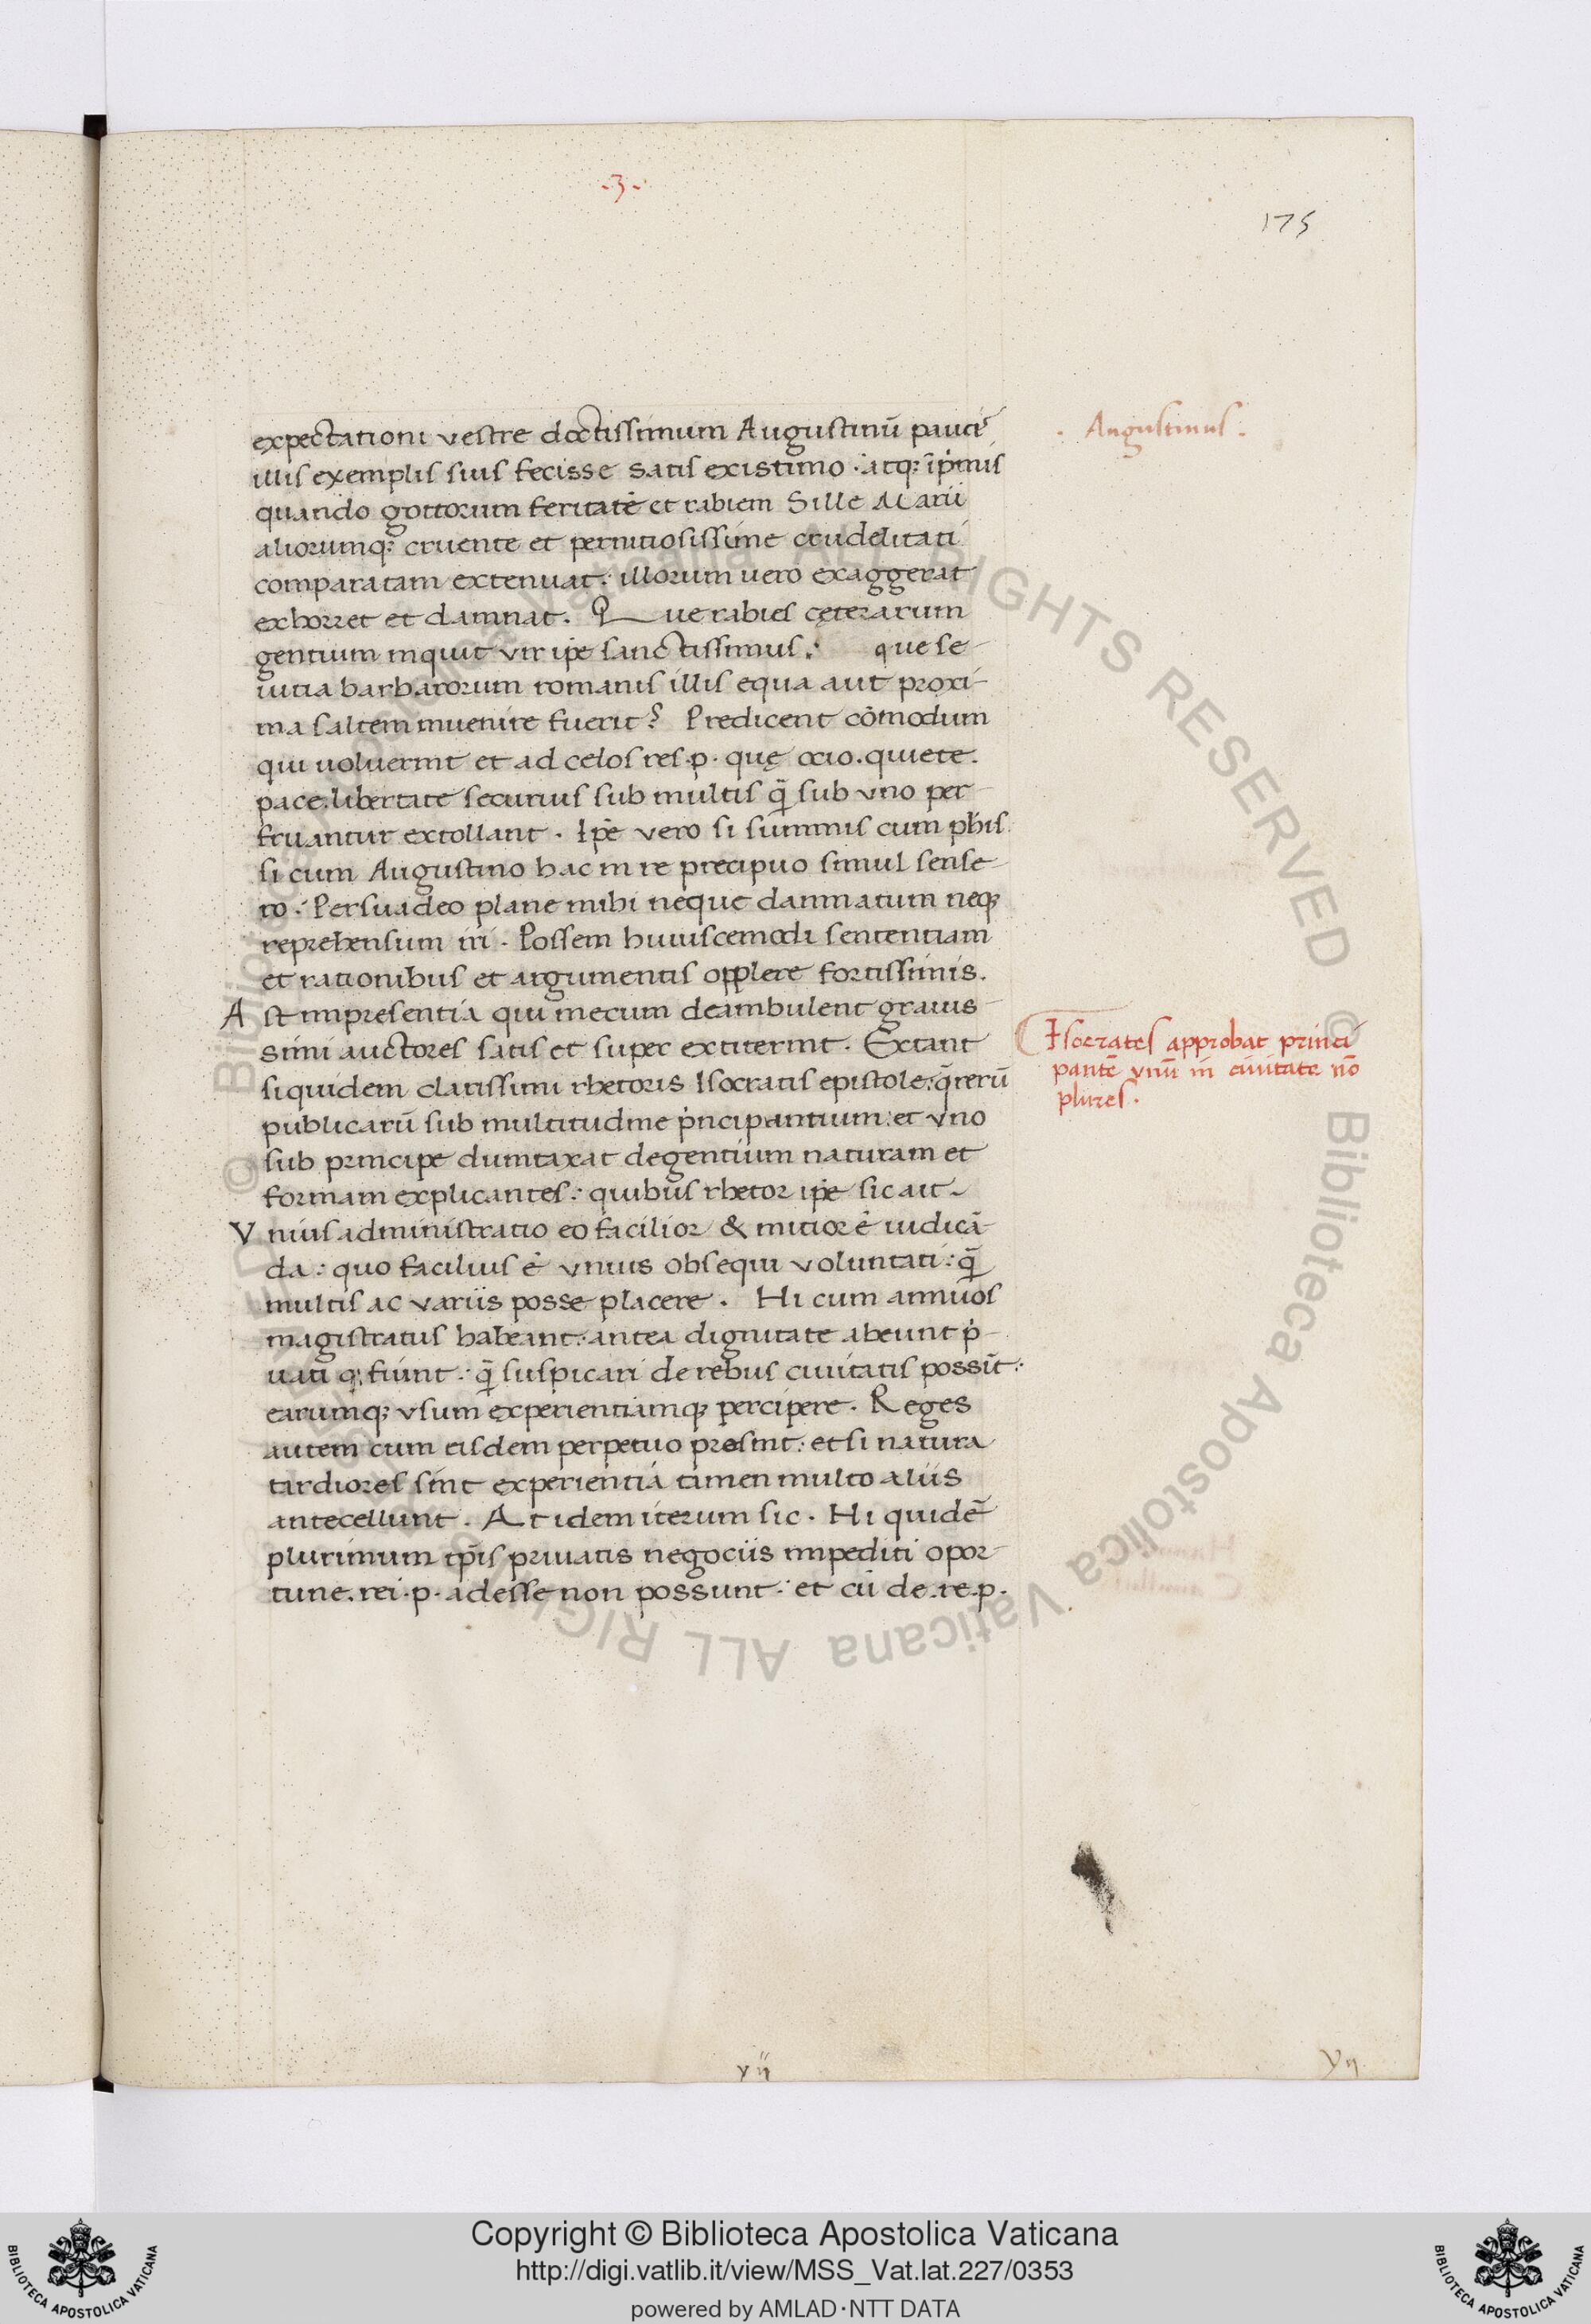 .3.
175
expectationi vestre doctissimum Augustinū pauci
illis exemplis suis fecisse satis existimo : atq; īpmis
quando gottorum feritatē et rabiem Sille Marii
aliorumq; cruente et pernitiosissime crudelitati
comparatam extenuat : illorum uero exaggerat
exhorret et damnat . Que rabies cęterarum
gentium inquit vir ipe sanctissimus : que se-
uitia barbarorum romanis illis equa aut proxi-
ma saltem inuenire fuerit ? Predicent cōmodum
qui uoluerint et ad celos res .p. quę ocio . quiete .
pace . libertate securius sub multis q̄ sub vno per
fruantur extollant . Ipē vero si summis cum phis
si cum Augustino hac in re precipuo simul sense-
ro : Persuadeo plane mihi neque damnatum neq;
reprehensum iri . Possem huiuscemodi sententiam
et rationibus et argumentis opplere fortissimis .
Ast inpresentia qui mecum deambulent grauis
simi auctores satis et super extiterint . Extant
siquidem clarissimi rhetoris Isocratis epistole : q̄ rerū
publicarū sub multitudine pncipantium : et vno
sub principe dumtaxat degentium naturam et
formam explicantes : quibus rhetor ipē sic ait .
Vnius administratio eo facilior & mitior ē iudicā-
da : quo facilius ē vnius obsequi voluntati : q̄
multis ac variis posse placere . Hi cum annuos
magistratus habeant : antea dignitate abeunt p-
uati q; fiunt : q̄ suspicari de rebus ciuitatis possūt :
earumq; vsum experientiamq; percipere . Reges
autem cum eisdem perpetuo presint : etsi natura
tardiores sint experientia tamen multo aliis
antecellunt . At idem iterum sic . Hi quidē
plurimum tp̄is priuatis negociis impediti opor-
tune . rei .p. adesse non possunt : et cū de .re.p.
. Augustinus .
Isocrates approbat princi
pantē vnū in ciuitate nō
plures .
y ii
y ii
© Biblioteca Apostolica Vaticana ALL RIGHTS RESERVED
© Biblioteca Apostolica Vaticana ALL RIGHTS RESERVED
Copyright © Biblioteca Apostolica Vaticana
http://digi.vatlib.it/view/MSS_Vat.lat.227/0353
powered by AMLAD·NTT DATA
BIBLIOTECA APOSTOLICA VATICANA
BIBLIOTECA APOSTOLICA VATICANA